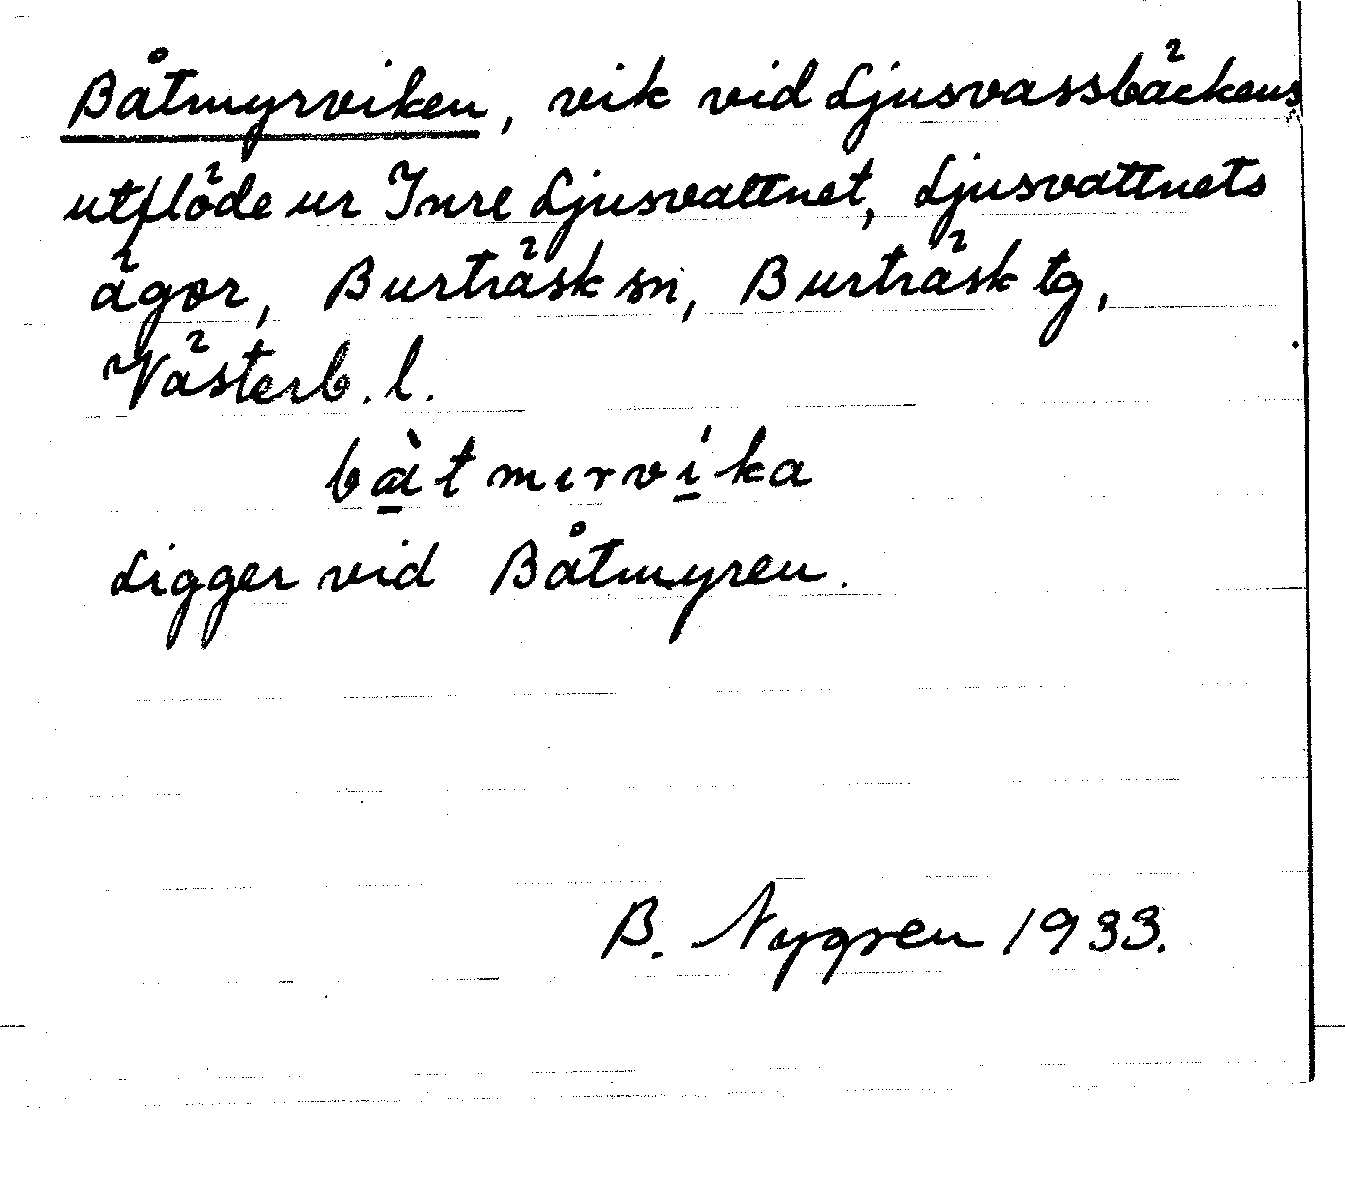 Båtmyrviken, vik vid Ljusvassbäckens
utflöde ur Inre Ljusvattnet, Ljusvattnets
ägor, Burträsk sn, Burträsk tg,
Västerb. l.
bà̱tmɩrví̱ka
Ligger vid Båtmyren.
B. Nygren 1933.